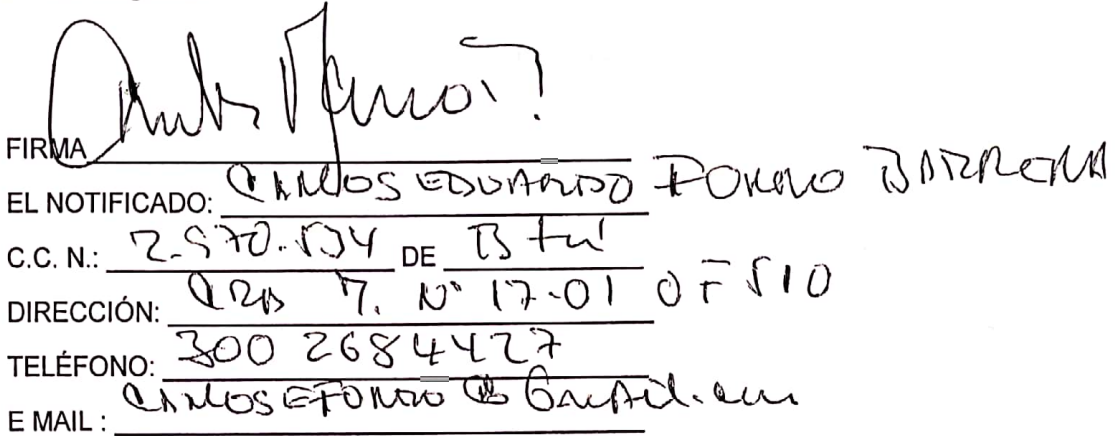 FIRMA
EL NOTIFICADO: CARLOS EDUARDO FORERO BARRERA
C.C. N.: 2.970.534 DE Bta
DIRECCIÓN: CRA 7. N° 17-01 OF 510
TELÉFONO: 300 2684427
E MAIL :